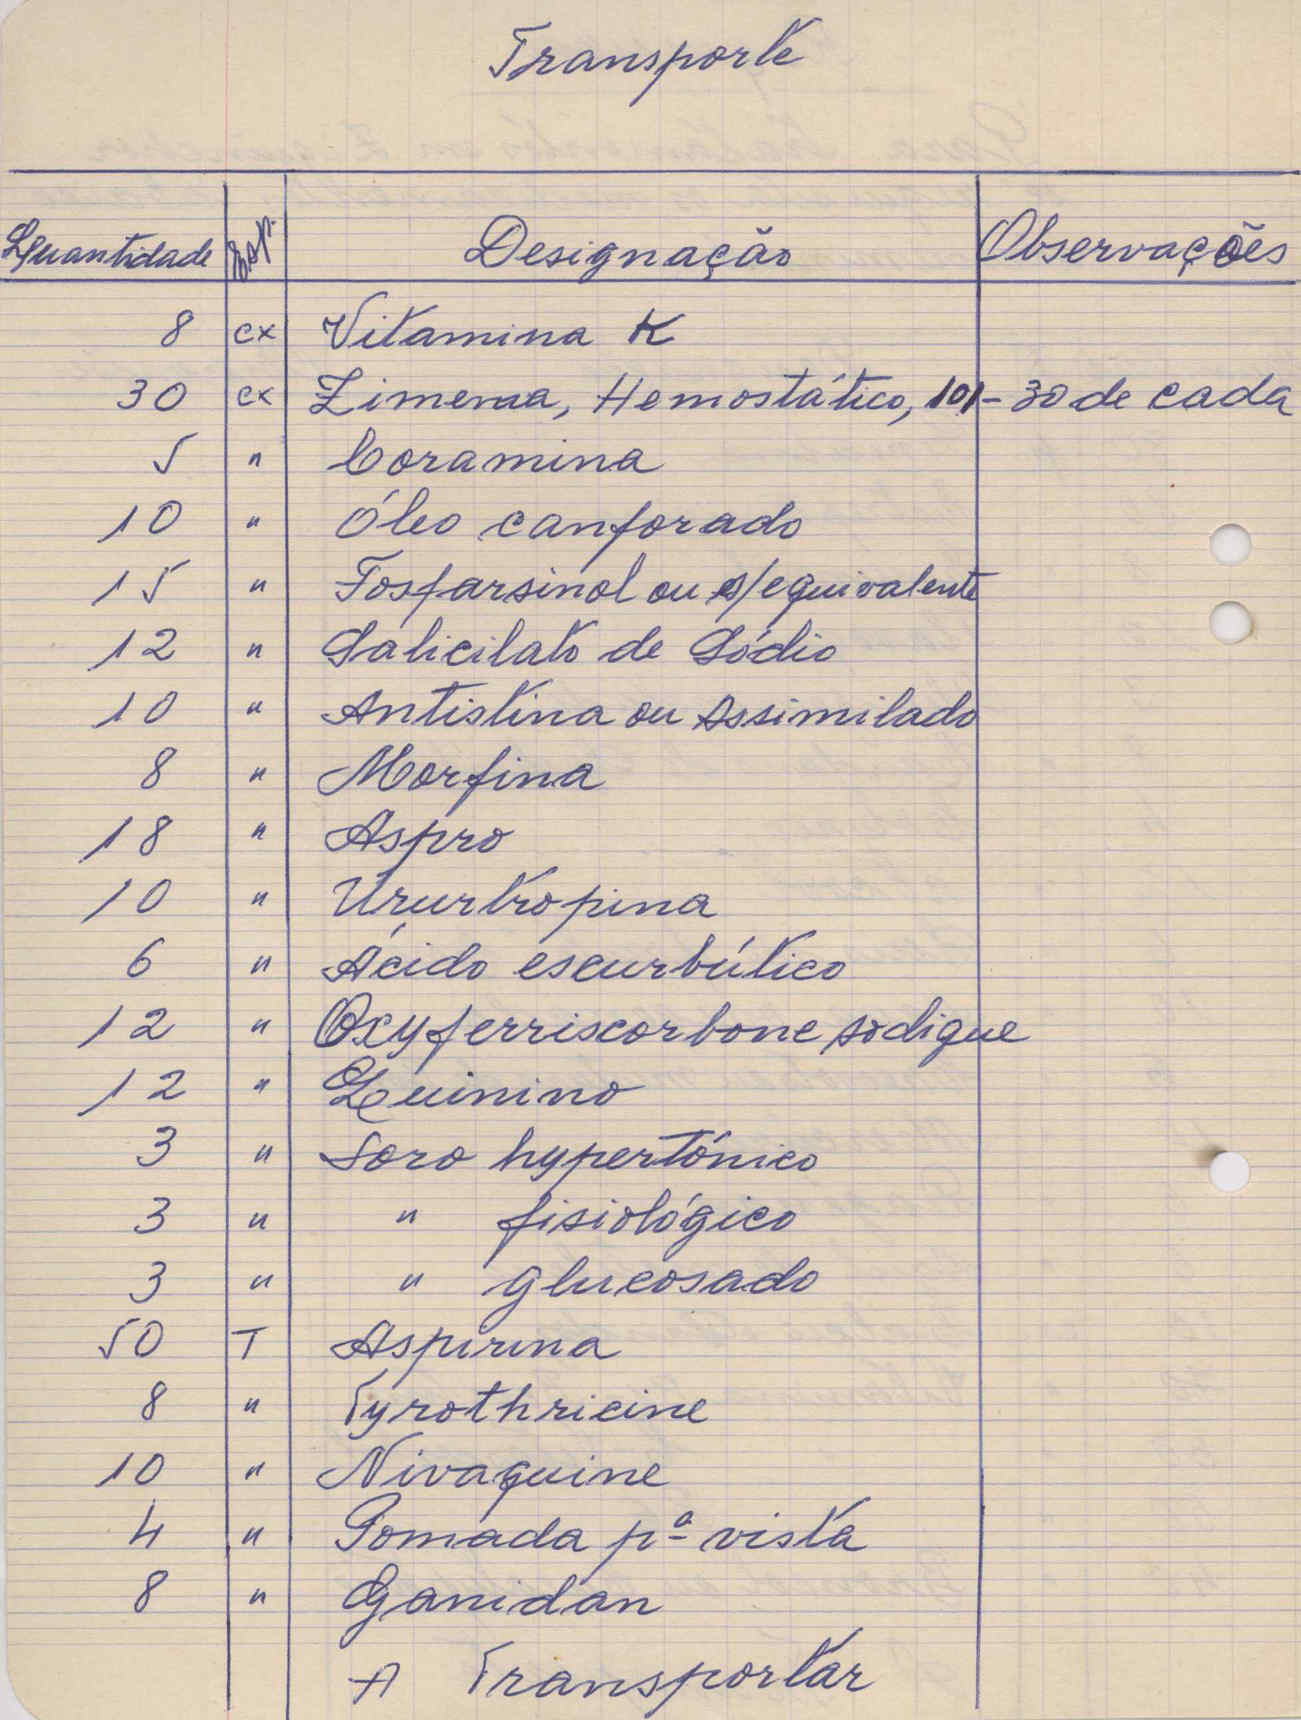 Transporte
Quantidade Esp. Designação Observações
8 cx Vitamina K
30 cx Zimema, Hemostático, 101 - 30 de cada
5 " Coramina
10 " Óleo canforado
15 " Fosfarsinol ou s/equivalente
12 " Salicilato de Sódio
10 " Antistina ou Assimilado
8 " Morfina
18 " Aspro
10 " Ururtropina
6 " Ácido escurbútico
12 " Oxyferriscorbone sodique
12 " Quinino
3 " Soro hypertónico
3 " " fisiológico
3 " " glucosado
50 T Aspirina
8 " Tyrothricine
10 " Nivaquine
4 " Pomada pª vista
8 " Ganidan
A Transportar